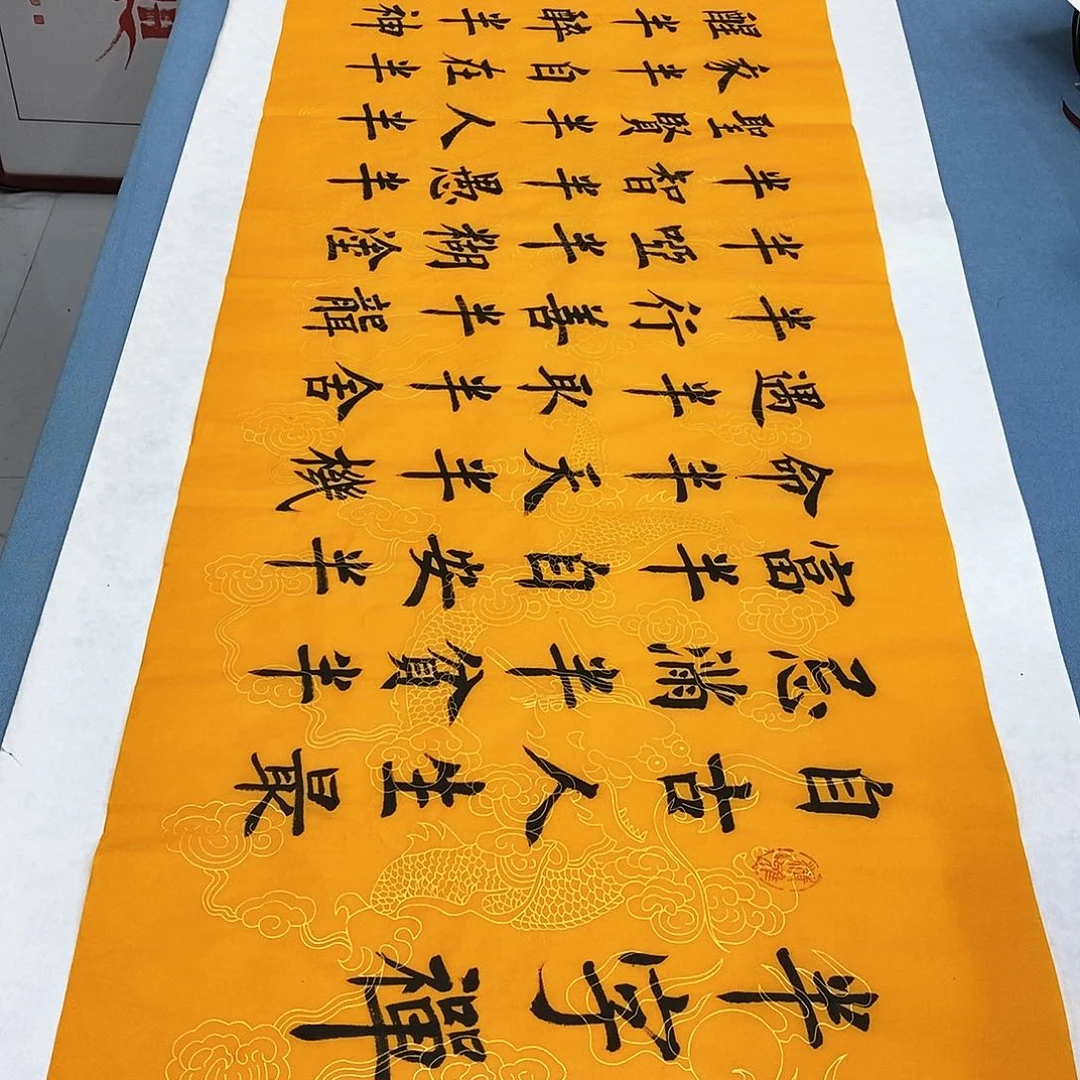 半字禪
自古人生最
忌滿半貧半
富半自安半
命半天半機
遇半取半舍
半行善半聾
半啞半糊塗
半智半愚半
聖賢半人半
家半自在半
醒半醉半神